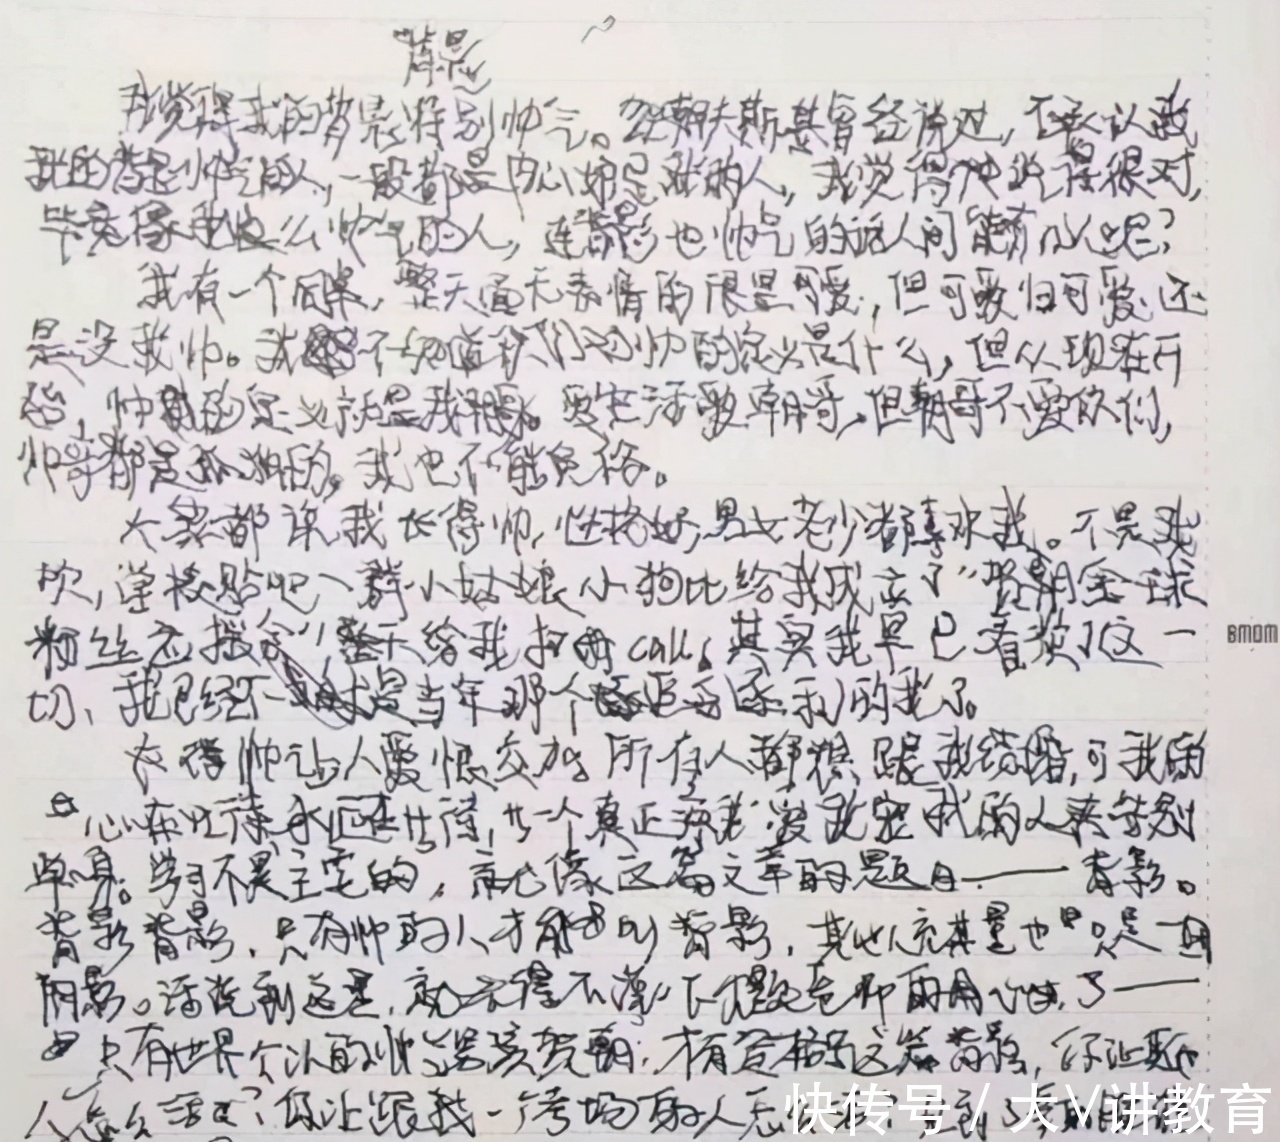 背影
我觉得我的背影特别帅气。贺朝夫斯基曾经说过,不承认我
我的背影帅气的人,一般都是内心妒忌我的人,我觉得他说得很对,
毕竟像我这么帅气的人,连背影也帅气的话人间能有几人呢?
我有一个同桌,整天面无表情的很是可爱,但可爱归可爱,还
是没我帅。我不知道你们对帅的定义是什么,但从现在开
始,帅的定义就是我。爱生活爱朝哥,但朝哥不爱你们,
帅哥都是孤独的,我也不能免俗。
大家都说我长得帅,性格好,男女老少都喜欢我。不是我
吹,学校贴吧一群小姑娘小狗比给我成立了"贺朝全球
粉丝应援会",整天给我打call,其实我早已看淡了这一
切、我已经不是当年那个的我了。
长得帅让人爱恨交加,所有人都想跟我结婚,可我的
心在忙着永远在忙着,等一个真正爱我宠我的人来告别
单身。学习不是主宰的,就像这篇文章的题目——背影。
背影背影,只有帅的人才能叫背影,其他人充其量也只是一团
阴影。话说到这里,就不得不的用心了——
只有世界公认的帅男孩贺朝,才有资格写这篇背影,你让其他
人怎么活?你让跟我一个考场的人
快传号 / 大V讲教育
BMDM